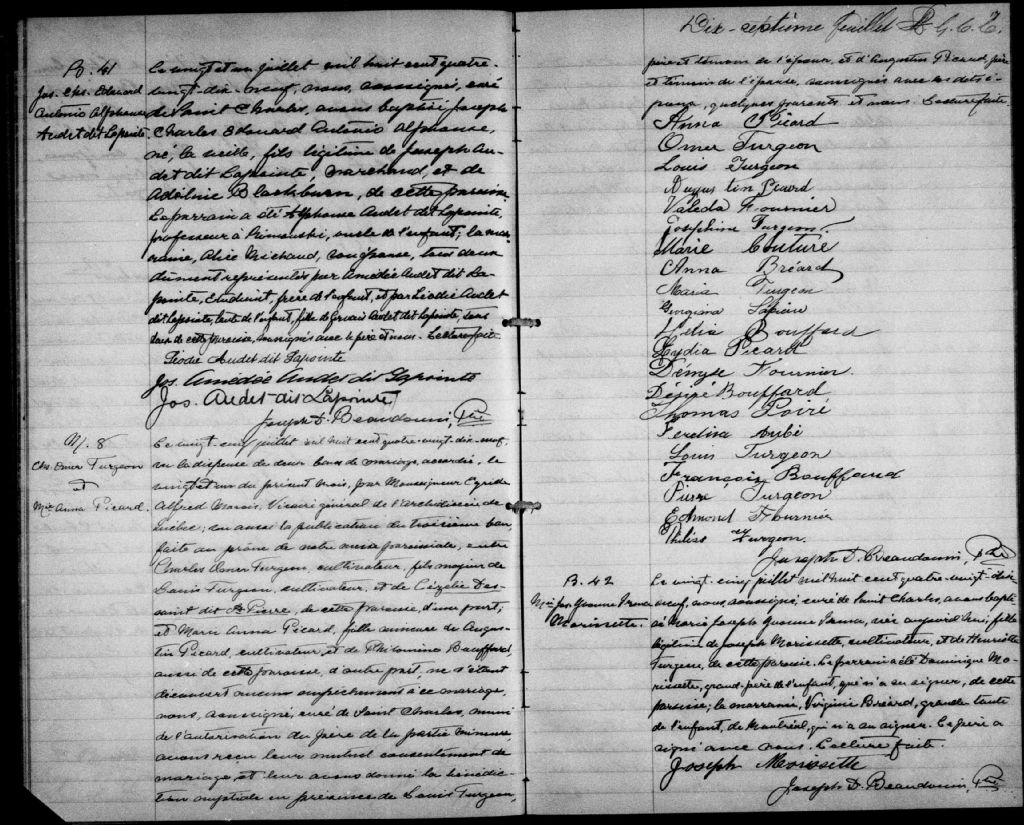 B. 41
Jos. Chs. Edouard
Antonio Alphonse
Audet dit Lapointe
Le vingt et un juillet mil huit cent quatre-
vingt-dix-neuf, nous, soussigné, curé
de Saint Charles, avons baptisé Joseph
Charles Edouard Antonio Alphonse,
né, la veille, fils légitime de Joseph Au-
det dit Lapointe, marchand, et de
Adeline Blackburn, de cette paroisse.
Le parrain a été Alphonse Audet dit Lapointe,
professeur à Rimouski, oncle de l'enfant; la mar-
raine, Alice Michaud, son épouse, tous deux
dûment représentés par Amédée Audet dit La-
pointe, étudiant, frère de l'enfant, et par Léodie Audet
dit Lapointe, tante de l'enfant, fille de Gervais Audet dit Lapointe, tous
deux de cette paroisse, soussignés avec le père et nous. Lecture faite
Léodie Audet dit Lapointe
Jos. Amédée Audet dit Lapointe
Jos. Audet-dit-Lapointe
Joseph D. Beaudouin, Ptre
M. 8
Chs. Omer Turgeon
et
Mie Anna Picard.
Le vingt-cinq juillet mil huit cent quatre-vingt-dix-neuf,
vu la dispense de deux bans de mariage, accordée, le
vingt et un du présent mois, par Monseigneur Cyrille
Alfred Marois, Vicaire général de l'archidiocèse de
Québec; vu aussi la publication du troisième ban,
faite au prône de notre messe paroissiale, entre
Charles Omer Turgeon, cultivateur, fils majeur de
Louis Turgeon, cultivateur, et de Cézélie Des-
saint dit St Pierre, de cette paroisse, d'une part;
et Marie Anna Picard, fille mineure de Augus-
tin Picard, cultivateur, et de Philomène Bouffard,
aussi de cette paroisse, d'autre part, ne s'étant
découvert aucun empêchement à ce mariage,
nous, soussigné, curé de Saint Charles, muni
de l'autorisation du père de la partie mineure,
avons reçu leur mutuel consentement de
mariage, et leur avons donné la bénédic-
tion nuptiale en présence de Louis Turgeon,
Dix-septième feuillet G. C. C.
père et témoin de l'époux, et d'Augustin Picard, père
et témoin de l'épouse, soussignés avec les dits é-
poux, quelques parents et nous. Lecture faite.
Anna Picard
Omer Turgeon
Louis Turgeon
Augustin Picard
Valeda Fournier
Joséphine Turgeon.
Marie Couture
Anna Bréard
Maria Turgeon
Georgiana
Bouffard
Lydia Picard
Démyse Fournier.
Désiré Bouffard
Thomas Poiré
Aubé
Louis Turgeon
François Bouffard
Pierre Turgeon
Edmond Fournier
Turgeon.
Joseph D. Beaudouin, Ptre
B. 42
Mie Jos. Yvonne Irma
Morissette.
Le vingt-cinq juillet mil huit cent quatre-vingt-dix-
neuf, nous, soussigné, curé de Saint Charles, avons bapti-
sé Marie Joseph Yvonne Irma, née aujourd'hui, fille
légitime de Joseph Morissette, cultivateur, et de Henriette
Turgeon, de cette paroisse. Le parrain a été Dominique Mo-
rissette, grand-père de l'enfant, qui n'a su signer, de cette
paroisse; la marraine, Virginie Bréard, grande tante
de l'enfant, de Montréal, qui n'a su signer. Le père a
signé avec nous. Lecture faite.
Joseph Morissette
Joseph D. Beaudouin, Ptre